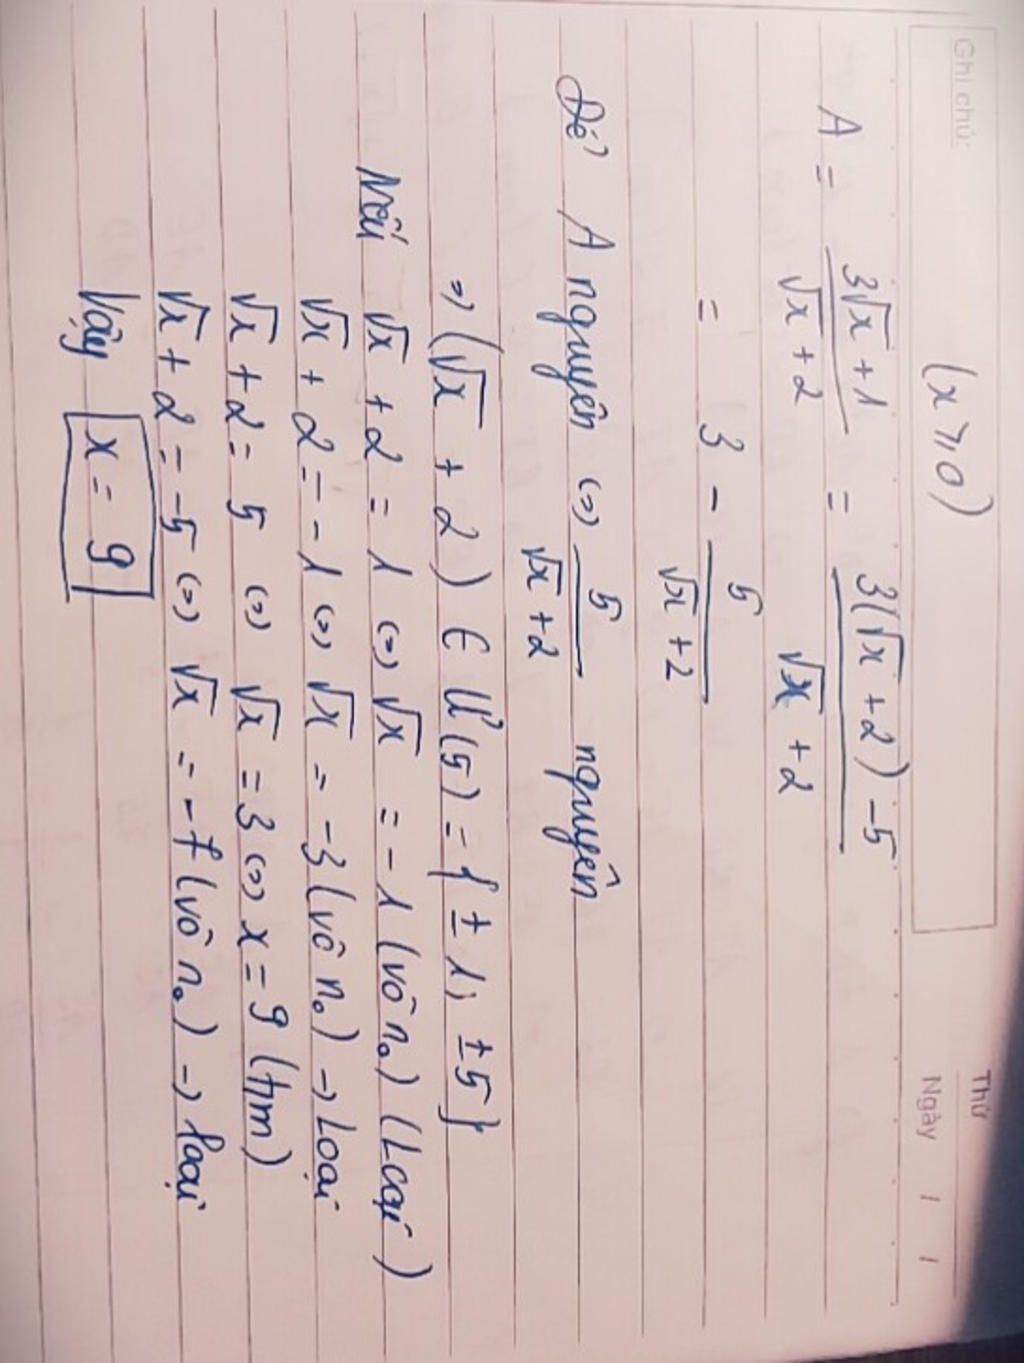 Ghi chú:
Thứ
Ngày / /
(x ≥ 0)
A = (3√x + 1)/(√x + 2) = (3(√x + 2) - 5)/(√x + 2)
= 3 - 5/(√x + 2)
Để A nguyên (=) 5/(√x + 2) nguyên
=> (√x + 2) ∈ Ư(5) = {± 1; ± 5}
Nếu √x + 2 = 1 (=) √x = - 1 (vô no) (Loại)
√x + 2 = - 1 (=) √x = -3 (vô no) -> Loại
√x + 2 = 5 (=) √x = 3 (=) x = 9 (tm)
√x + 2 = -5 (=) √x = -7 (vô no) -> loại
Vậy x = 9